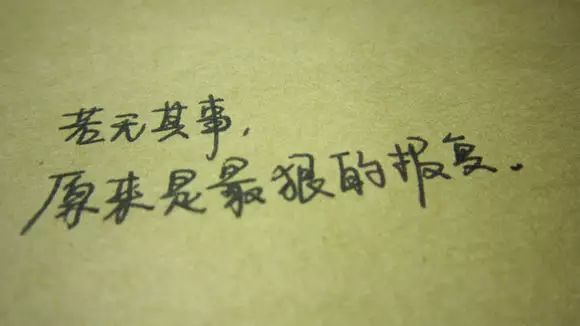 若无其事,
原来是最狠的报复.